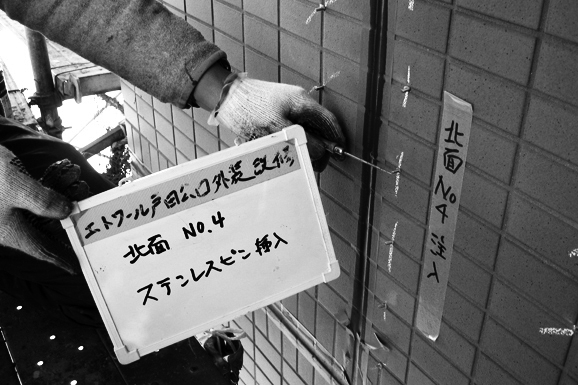 エトワール戸田公口外装改修
北面 NO.4
ステンレスピン挿入
北面 No 4 注入